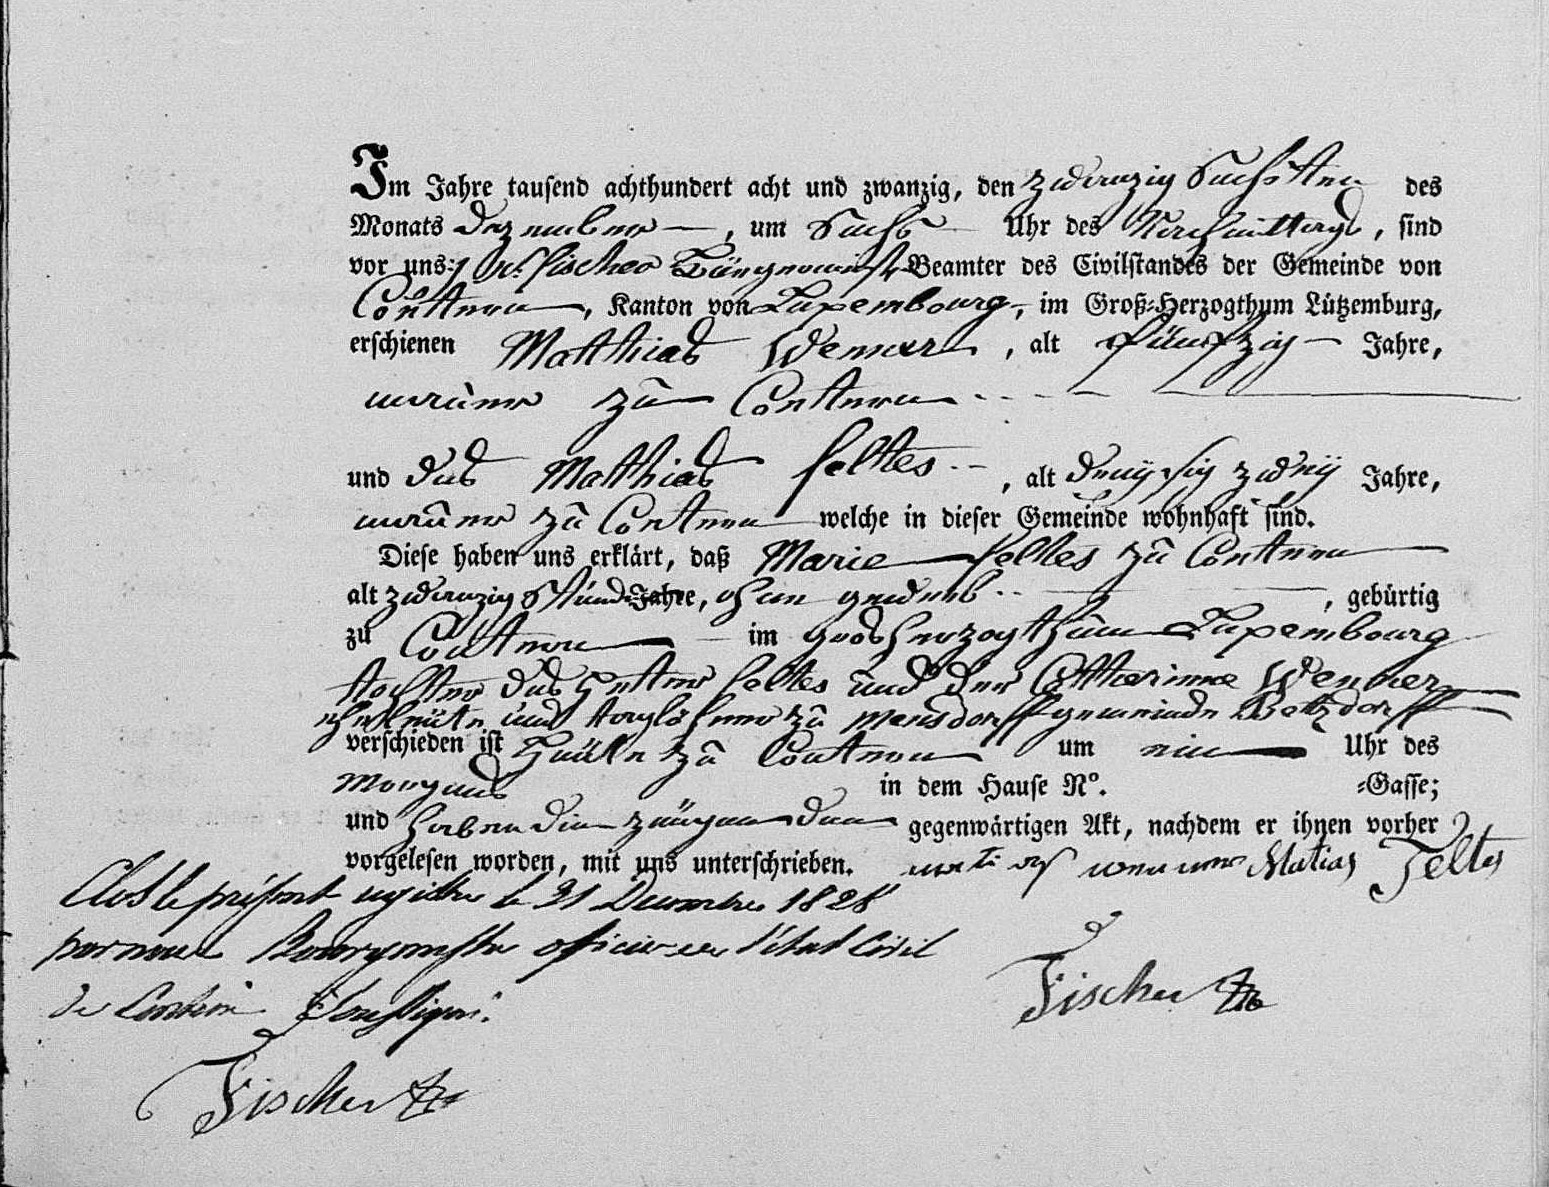 Im Jahre tausend achthundert acht und zwanzig, den zwanzig Sechsten des
Monats Dezember —, um Sechs — Uhr des Nachmittags, sind
vor uns: Fischer Bürgermeister Beamter des Civilstandes der Gemeinde von
Contern —, Kanton von Luxembourg —, im Groß-Herzogthum Lützemburg,
erschienen Matthias Wenner —, alt fünfzig — Jahre,
maurer zu Contern
und des Mathias feltes —, alt dreyssig zwey Jahre,
maurer zu Contern — welche in dieser Gemeinde wohnhaft sind.
Diese haben uns erklärt, daß Marie feltes zu Contern —
alt zwanzig Stunde Jahre, ohne gewerb —, gebürtig
zu Contern — im grosherzogthum Luxembourg
tochter des Peter feltes und der Catharina Wenner
eheleute und taglöhner zu mensdorff gemeinde Betzdorff
verschieden ist Heute zu Contern um ein — Uhr des
Morgens in dem Hause N°. -Gasse;
und haben die zeugen den gegenwärtigen Akt, nachdem er ihnen vorher
vorgelesen worden, mit uns unterschrieben. wenner Matias Feltes
Clos le présent registre le 31 Decembre 1828
par nous Bourgmestre officier de l'état Civil
de Contern soussigné.
Fischer
Fischer